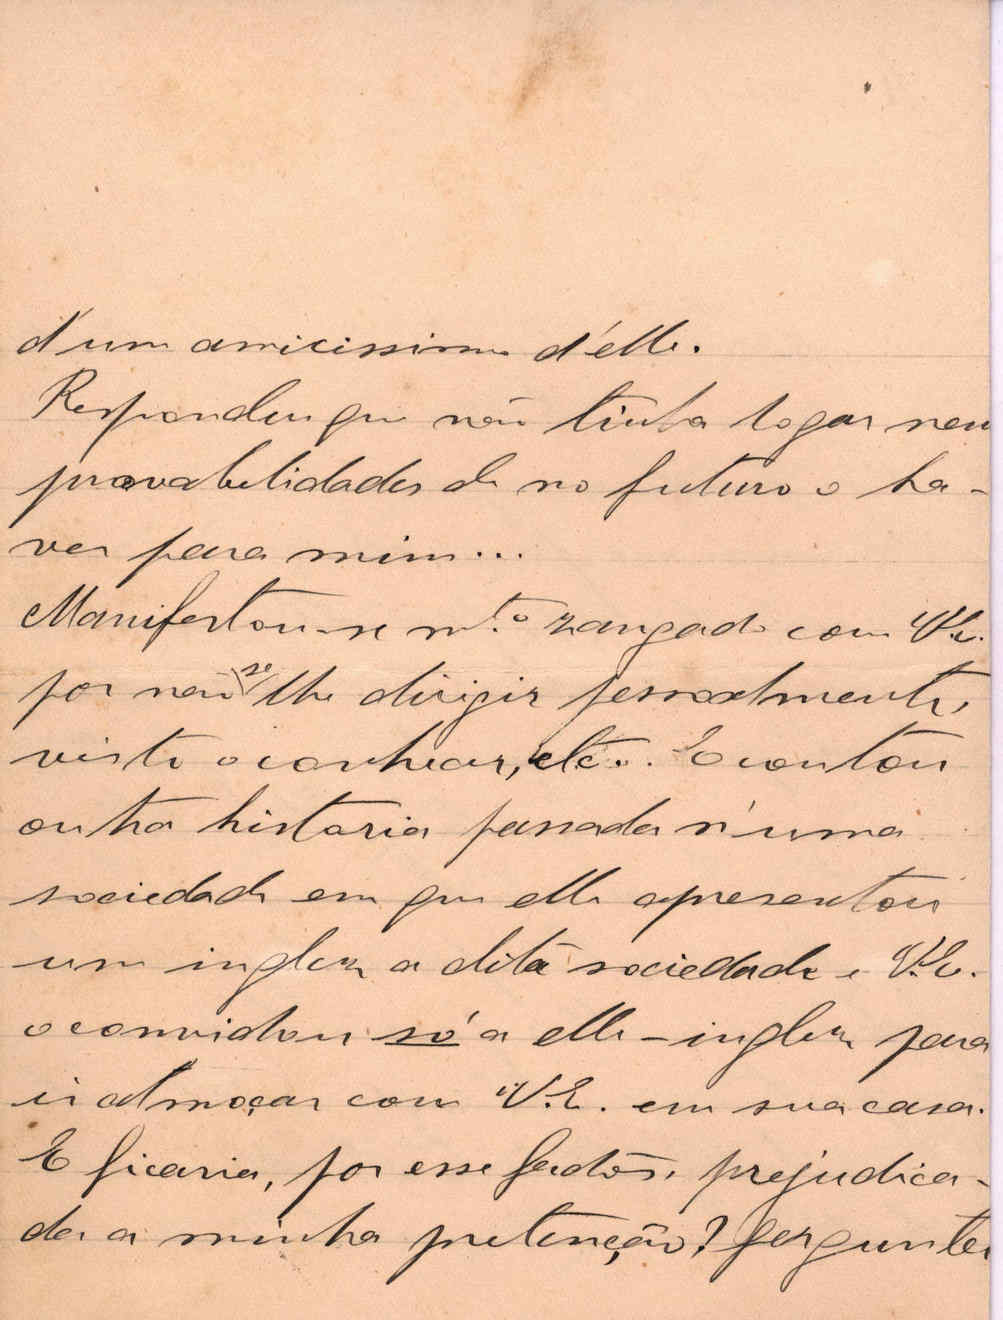 d'um amicissimo d'elle.
Respondeu que não tinha logar nem
provabelidades de no futuro o ha-
ver para mim...
Manifestou-se m.to zangado com V.E.
por não se lhe dirigir pessoalmente,
visto o conhecer, etc.. E contou
outra historia passada n'uma
sociedade em que elle apresentou
um inglez a dita sociedade e V.E.
o convidou só a elle - inglez para
ir almoçar com V.E. em sua casa.
E ficaria, por esse facto, prejudica-
da a minha pretenção? Perguntei